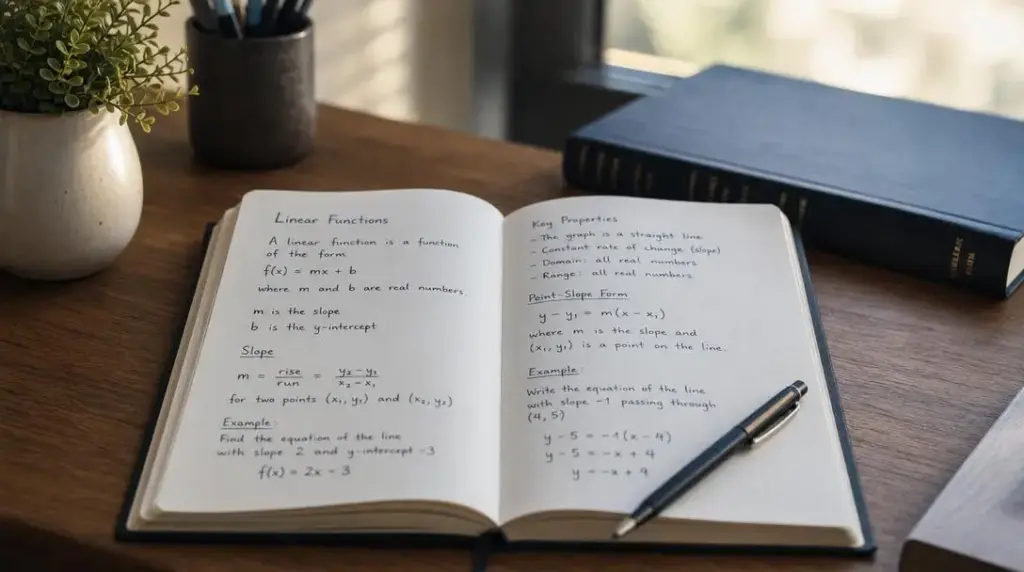 Linear Functions
A linear function is a function
of the form
f(x) = mx + b
where m and b are real numbers.
m is the slope
b is the y-intercept
Slope
m = rise/run = (y₂ - y₁)/(x₂ - x₁)
for two points (x₁, y₁) and (x₂, y₂)
Example:
Find the equation of the line
with slope 2 and y-intercept -3
f(x) = 2x - 3
Key Properties
- The graph is a straight line
- Constant rate of change (slope)
- Domain: all real numbers
- Range: all real numbers
Point-Slope Form
y - y₁ = m(x - x₁)
where m is the slope and
(x₁, y₁) is a point on the line.
Example:
Write the equation of the line
with slope -1 passing through
(4, 5)
y - 5 = -1(x - 4)
y - 5 = -x + 4
y = -x + 9